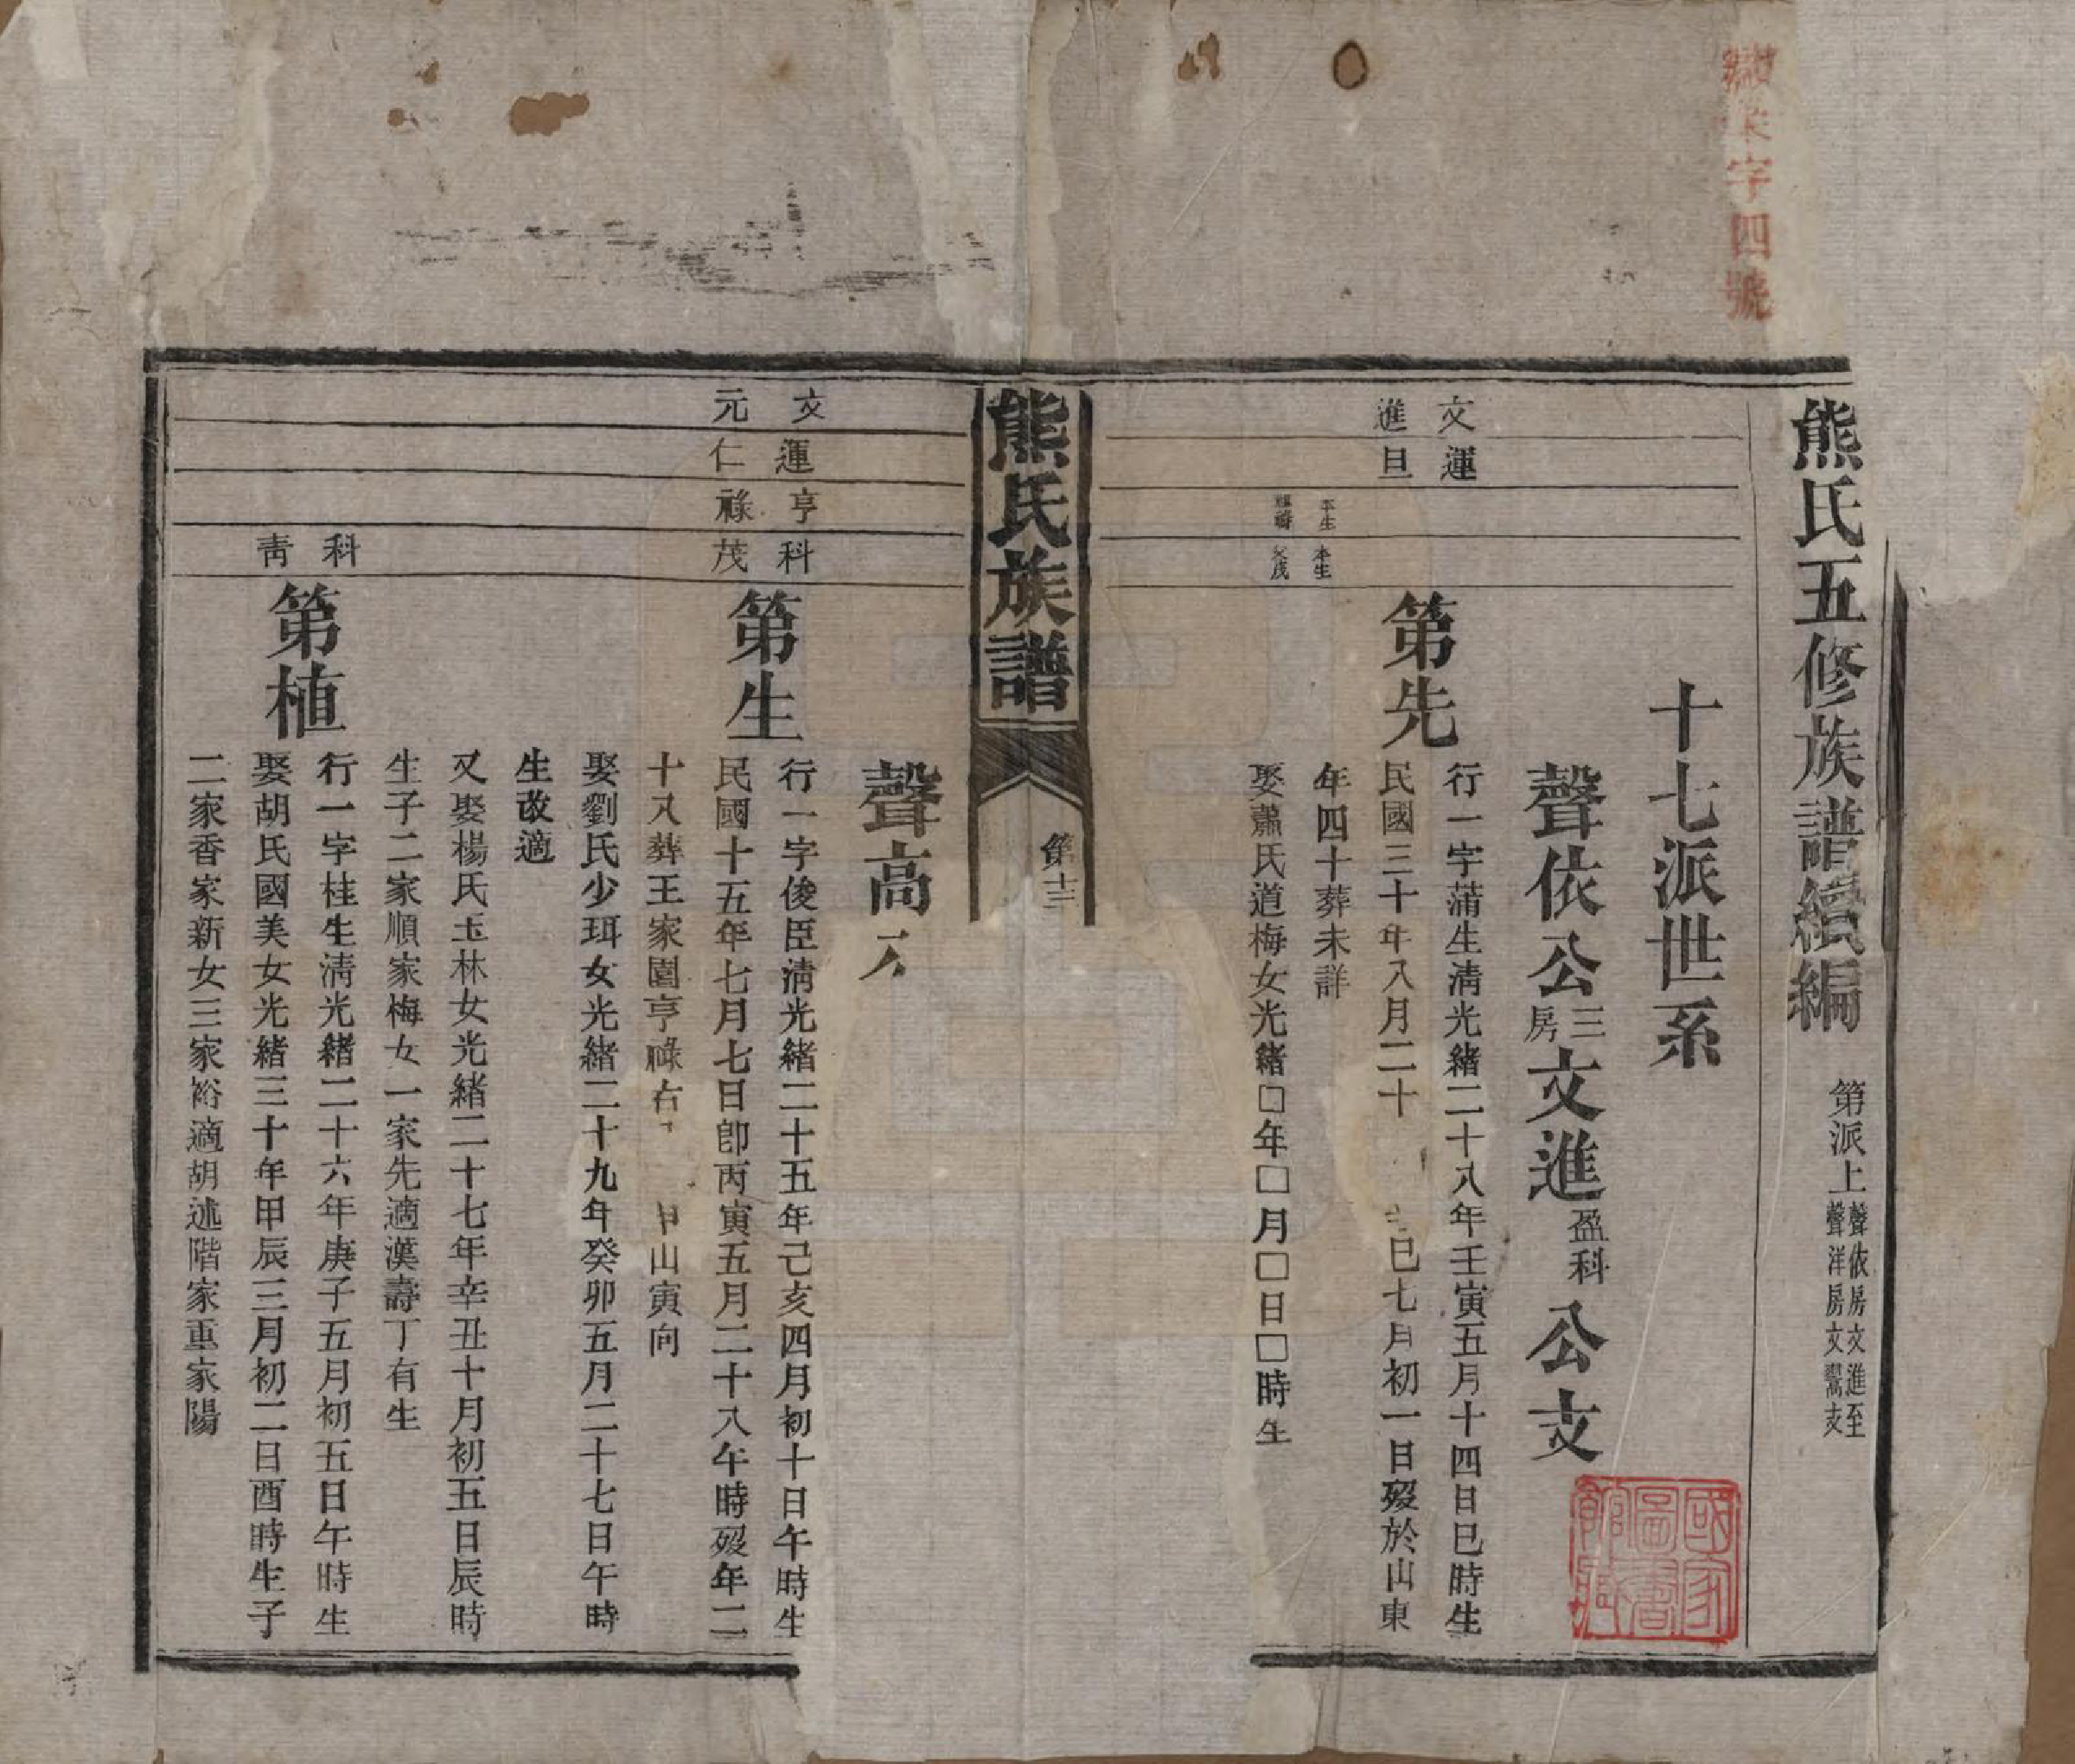 字四號
熊氏五修族譜續編
第派上
聲依房文進至
聲洋房文翯支
十七派世系
聲依公三房文進盈科公支
文進
運旦
本生
本生
第先
行一字蒲生淸光緒二十八年壬寅五月十四日巳時生
民國三十年八月二十
巳七月初一日歿於山東
年四十葬未詳
娶蕭氏道梅女光緒□年□月□日□時生
熊氏族譜
第十三
聲高
文元
運仁
亨祿
科茂
第生
行一字俊臣淸光緒二十五年己亥四月初十日午時生
民國十五年七月七日卽丙寅五月二十八午時歿年二
十八葬王家園亨祿右
申山寅向
娶劉氏少珥女光緒二十九年癸卯五月二十七日午時
生改適
又娶楊氏玉林女光緒二十七年辛丑十月初五日辰時
生子二家順家梅女一家先適漢壽丁有生
科靑
第植
行一字桂生淸光緒二十六年庚子五月初五日午時生
娶胡氏國美女光緒三十年甲辰三月初二日酉時生子
二家香家新女三家裕適胡述階家重家陽
國家圖書館藏